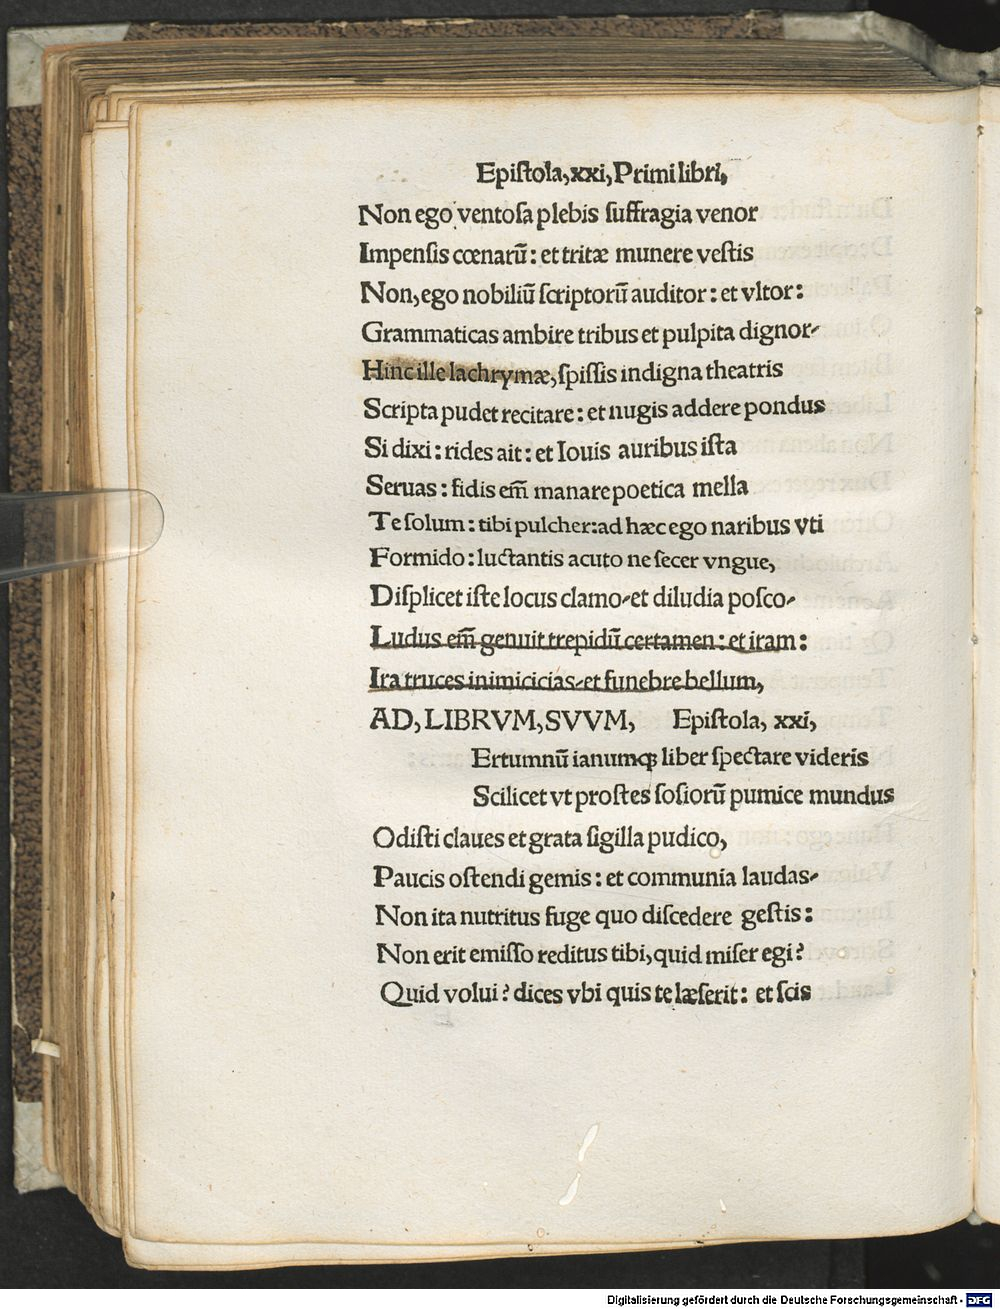 Epiſtola,xxi,Primi libri,
Non ego ventoſa plebis ſuffragia venor
Impenſis cœnarū: et tritæ munere veſtis
Non,ego nobiliū ſcriptorū auditor: et vltor:
Grammaticas ambire tribus et pulpita dignor⸗
Hinc ille lachrymæ,ſpiſſis indigna theatris
Scripta pudet recitare: et nugis addere pondus
Si dixi: rides ait: et Iouis auribus iſta
Seruas: fidis em̄ manare poetica mella
Te ſolum: tibi pulcher: ad hæc ego naribus vti
Formido: luctantis acuto ne ſecer vngue,
Diſplicet iſte locus clamo⸗et diludia poſco⸗
Ludus em̄ genuit trepidū certamen: et iram:
Ira truces inimicicias⸗et funebre bellum,
AD,LIBRVM,SVVM, Epiſtola, xxi,
Ertumnū ianumqꝫ liber ſpectare videris
Scilicet vt proſtes ſoſiorū pumice mundus
Odiſti claues et grata ſigilla pudico,
Paucis oſtendi gemis: et communia laudas⸗
Non ita nutritus fuge quo diſcedere geſtis:
Non erit emiſſo reditus tibi,quid miſer egi?
Quid volui? dices vbi quis te læſerit: et ſcis
Digitalisierung gefördert durch die Deutsche Forschungsgemeinschaft - DFG